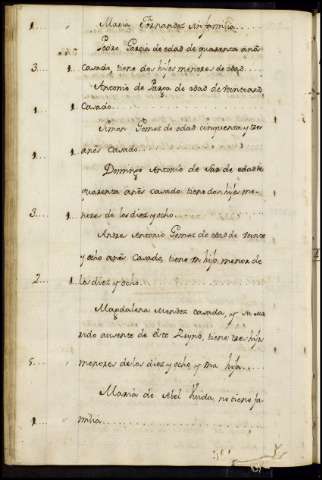 1.. Maria Fernandez sin familia....
Pedro Garcia de edad de quarenta años
3... 1.. casado, tiene dos hijos menores de edad...
Antonio de Parga de edad de
1... 1.. casado....
Simon Gomez de edad cinquenta y tres
1... 1.. años casado....
Domingo Antonio de edad de
quarenta años casado tiene dos hijos me-
3... 1.. nores de los diez y ocho....
Andre Antonio Gomez de edad de veinte
y ocho años casado, tiene un hijo menor de
2... 1.. los diez y ocho....
Magdalena Mendez casada, y su ma
rido ausente de este Reyno, tiene tres hijos
5... menores de los diez y ocho y una hija....
Maria de Abel viuda, no tiene fa
1... milia....